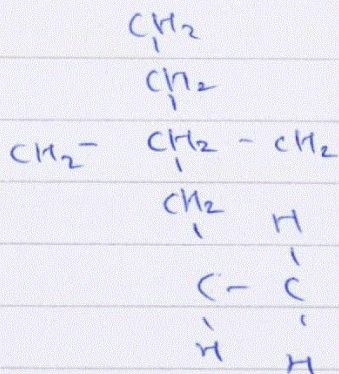 CH2
CH2
CH2 - CH2 - CH2
CH2 H
C - C
H H